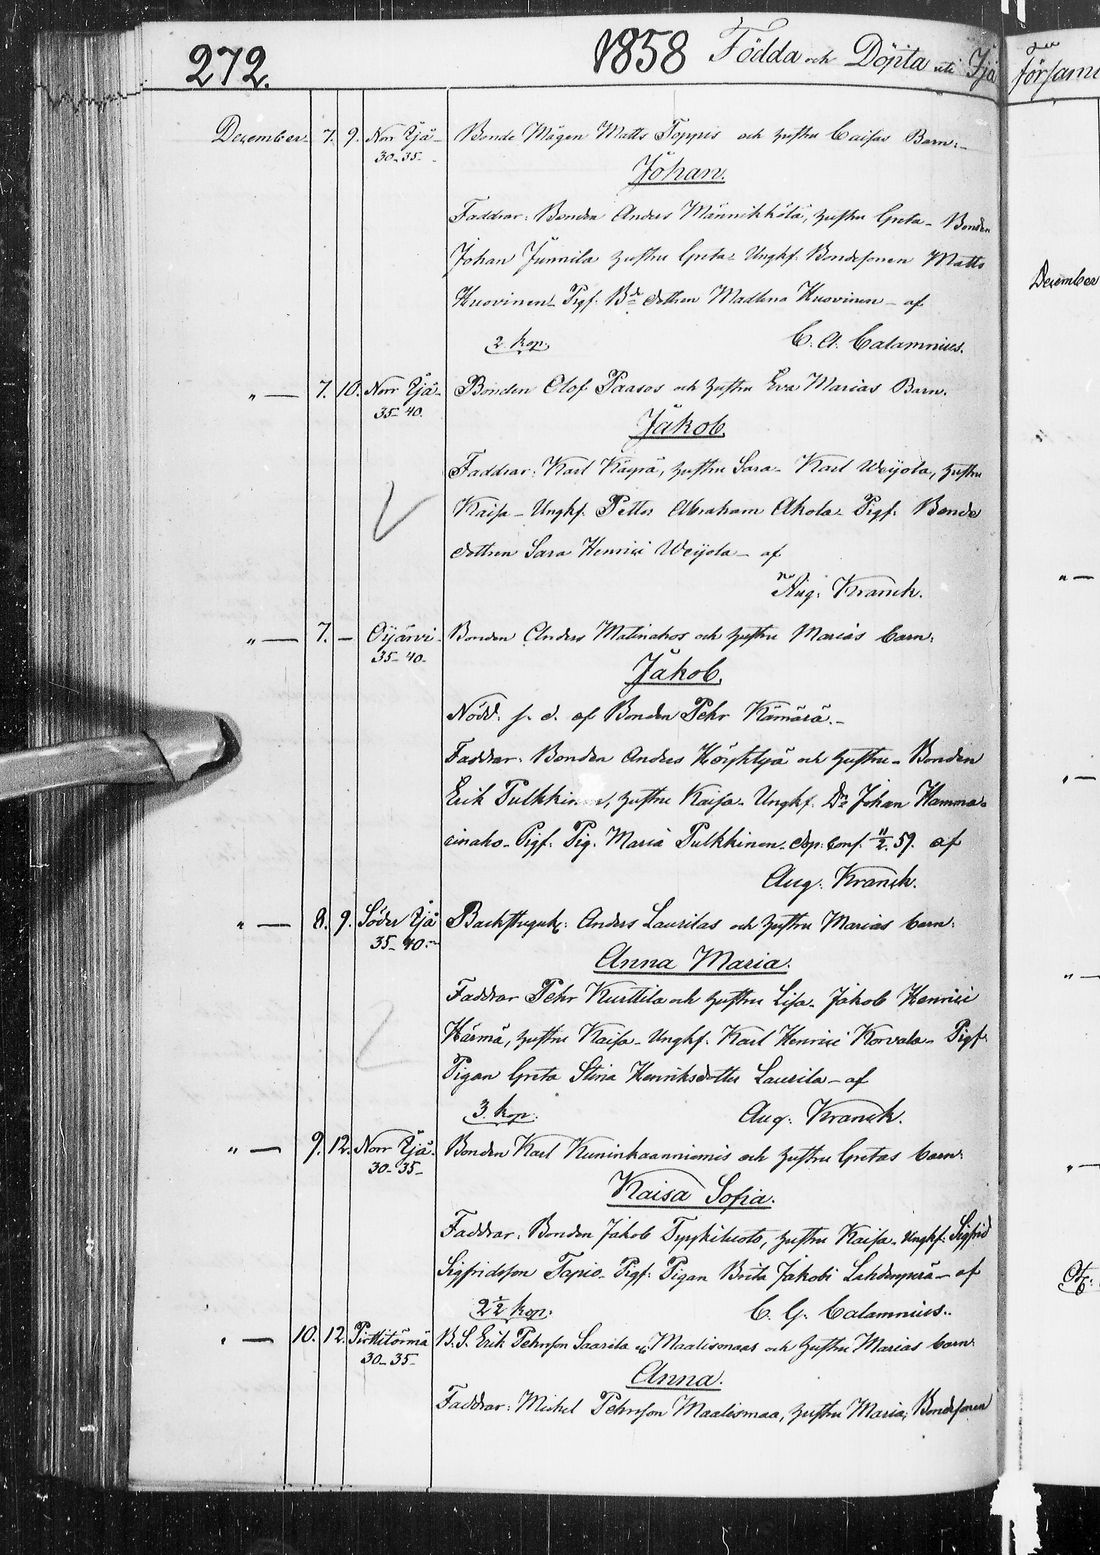 272. 1858 Födda och Döpta uti Ijä
December 7. 9. Norr Ijä Bonde Mågen Matts Toppis och hustru Caisas Barn:
30-35
Johan.
Faddrar: Bonden Anders Männikkölä, hustru Greta - Bonden
Johan Junnila hustru Greta - Ungkf. Bondesonen Matts
Kuovinen - Pigf. Bde dottren Madlena Kuovinen - af
2 kop. C. A. Calamnius.
" — 7. 10. Norr Ijä Bonden Olof Paasos och hustru Eva Marias Barn.
35-40.
Jakob.
Faddrar: Karl Käyrä, hustru Sara - Karl Weijola, hustru
Kaisa - Ungkf. Petter Abraham Akola - Pigf. Bonde
dottren Sara Henrici Weijola - af
Aug. Kranck.
" — 7. — Oijärvi Bonden Anders Matinahos och hustru Marias barn.
35-40.
Jakob.
Nöd. f. d. af Bonden Pehr Kämärä.-
Faddrar: Bonden Anders och hustru - Bonden
Erik Pulkkinen, hustru Kaisa - Ungkf. Dr. Johan Hamma-
- Pigf. Pig. Maria Pulkkinen - dop. conf. 11/2. 59. af
Aug. Kranck.
" — 8. 9. Söder Ijä Backstuguk: Anders Laurilas och hustru Marias barn.
35-40.
Anna Maria.
Faddrar Pehr Kurttila och hustru Lisa - Jakob Henrici
Härmä, hustru Kaisa - Ungkf. Karl Henrici Korvala - Pigf.
Pigan Greta Stina Henriksdotter Laurila - af
3. kop. Aug. Kranck.
" — 9. 12. Norr Ijä. Bonden Karl Kuninkaanniemis och hustru Gretas barn.
30-35-
Kaisa Sofia.
Faddrar: Bonden Jakob, hustru Kaisa - Ungkf. Sigfrid
Sigfridsson Tapio - Pigf. Pigan Brita Jakobi Lahdenperä - af
2½ kop. C. G. Calamnius.
" — 10. 12. Pirttitörmä B. S. Erik Pehrsson Saarela Maalismaas och hustru Marias barn.
30-35-
Anna.
Faddrar: Michel Pehrsson Maalismaa, hustru Maria, Bondesonen
församl
December